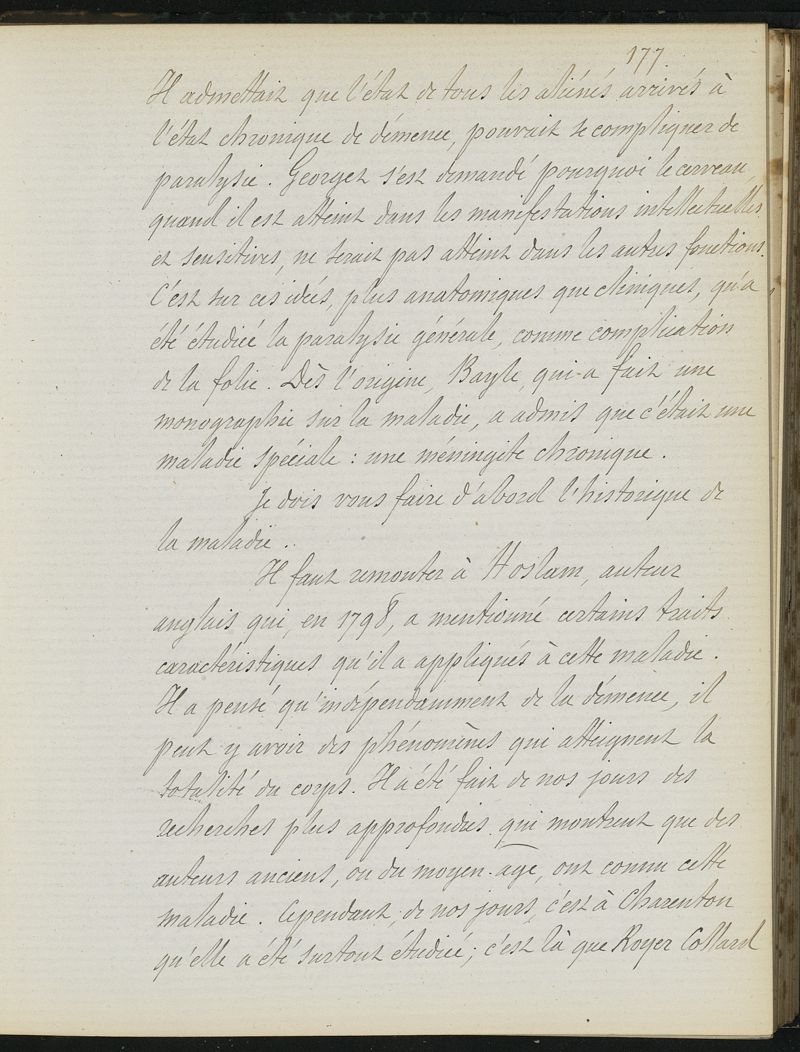 177.
Il admettait que l'état de tous les aliénés arrivés à
l'état chronique de démence, pouvait se compliquer de
paralysie. Georget s'est demandé pourquoi le cerveau,
quand il est atteint dans les manifestations intellectuelles
et sensitives, ne serait pas atteint dans les autres fonctions.
C'est sur ces idées, plus anatomiques que cliniques, qu'a
été étudiée la paralysie générale, comme complication
de la folie. Dès l'origine, Bayle, qui a fait une
monographie sur la maladie, a admis que c'était une
maladie spéciale : une méningite chronique.
Je dois vous faire d'abord l'historique de
la maladie..
Il faut remonter à Hoslam, auteur
anglais qui, en 1798, a mentionné certains traits
caractéristiques qu'il a appliqués à cette maladie.
Il a pensé qu'indépendamment de la démence, il
peut y avoir des phénomènes qui atteignent la
totalité du corps. Il a été fait de nos jours des
recherches plus approfondies qui montrent que des
auteurs anciens, ou du moyen-age, ont connu cette
maladie. Cependant, de nos jours, c'est à Charenton
qu'elle a été surtout étudiée; c'est là que Royer Collard